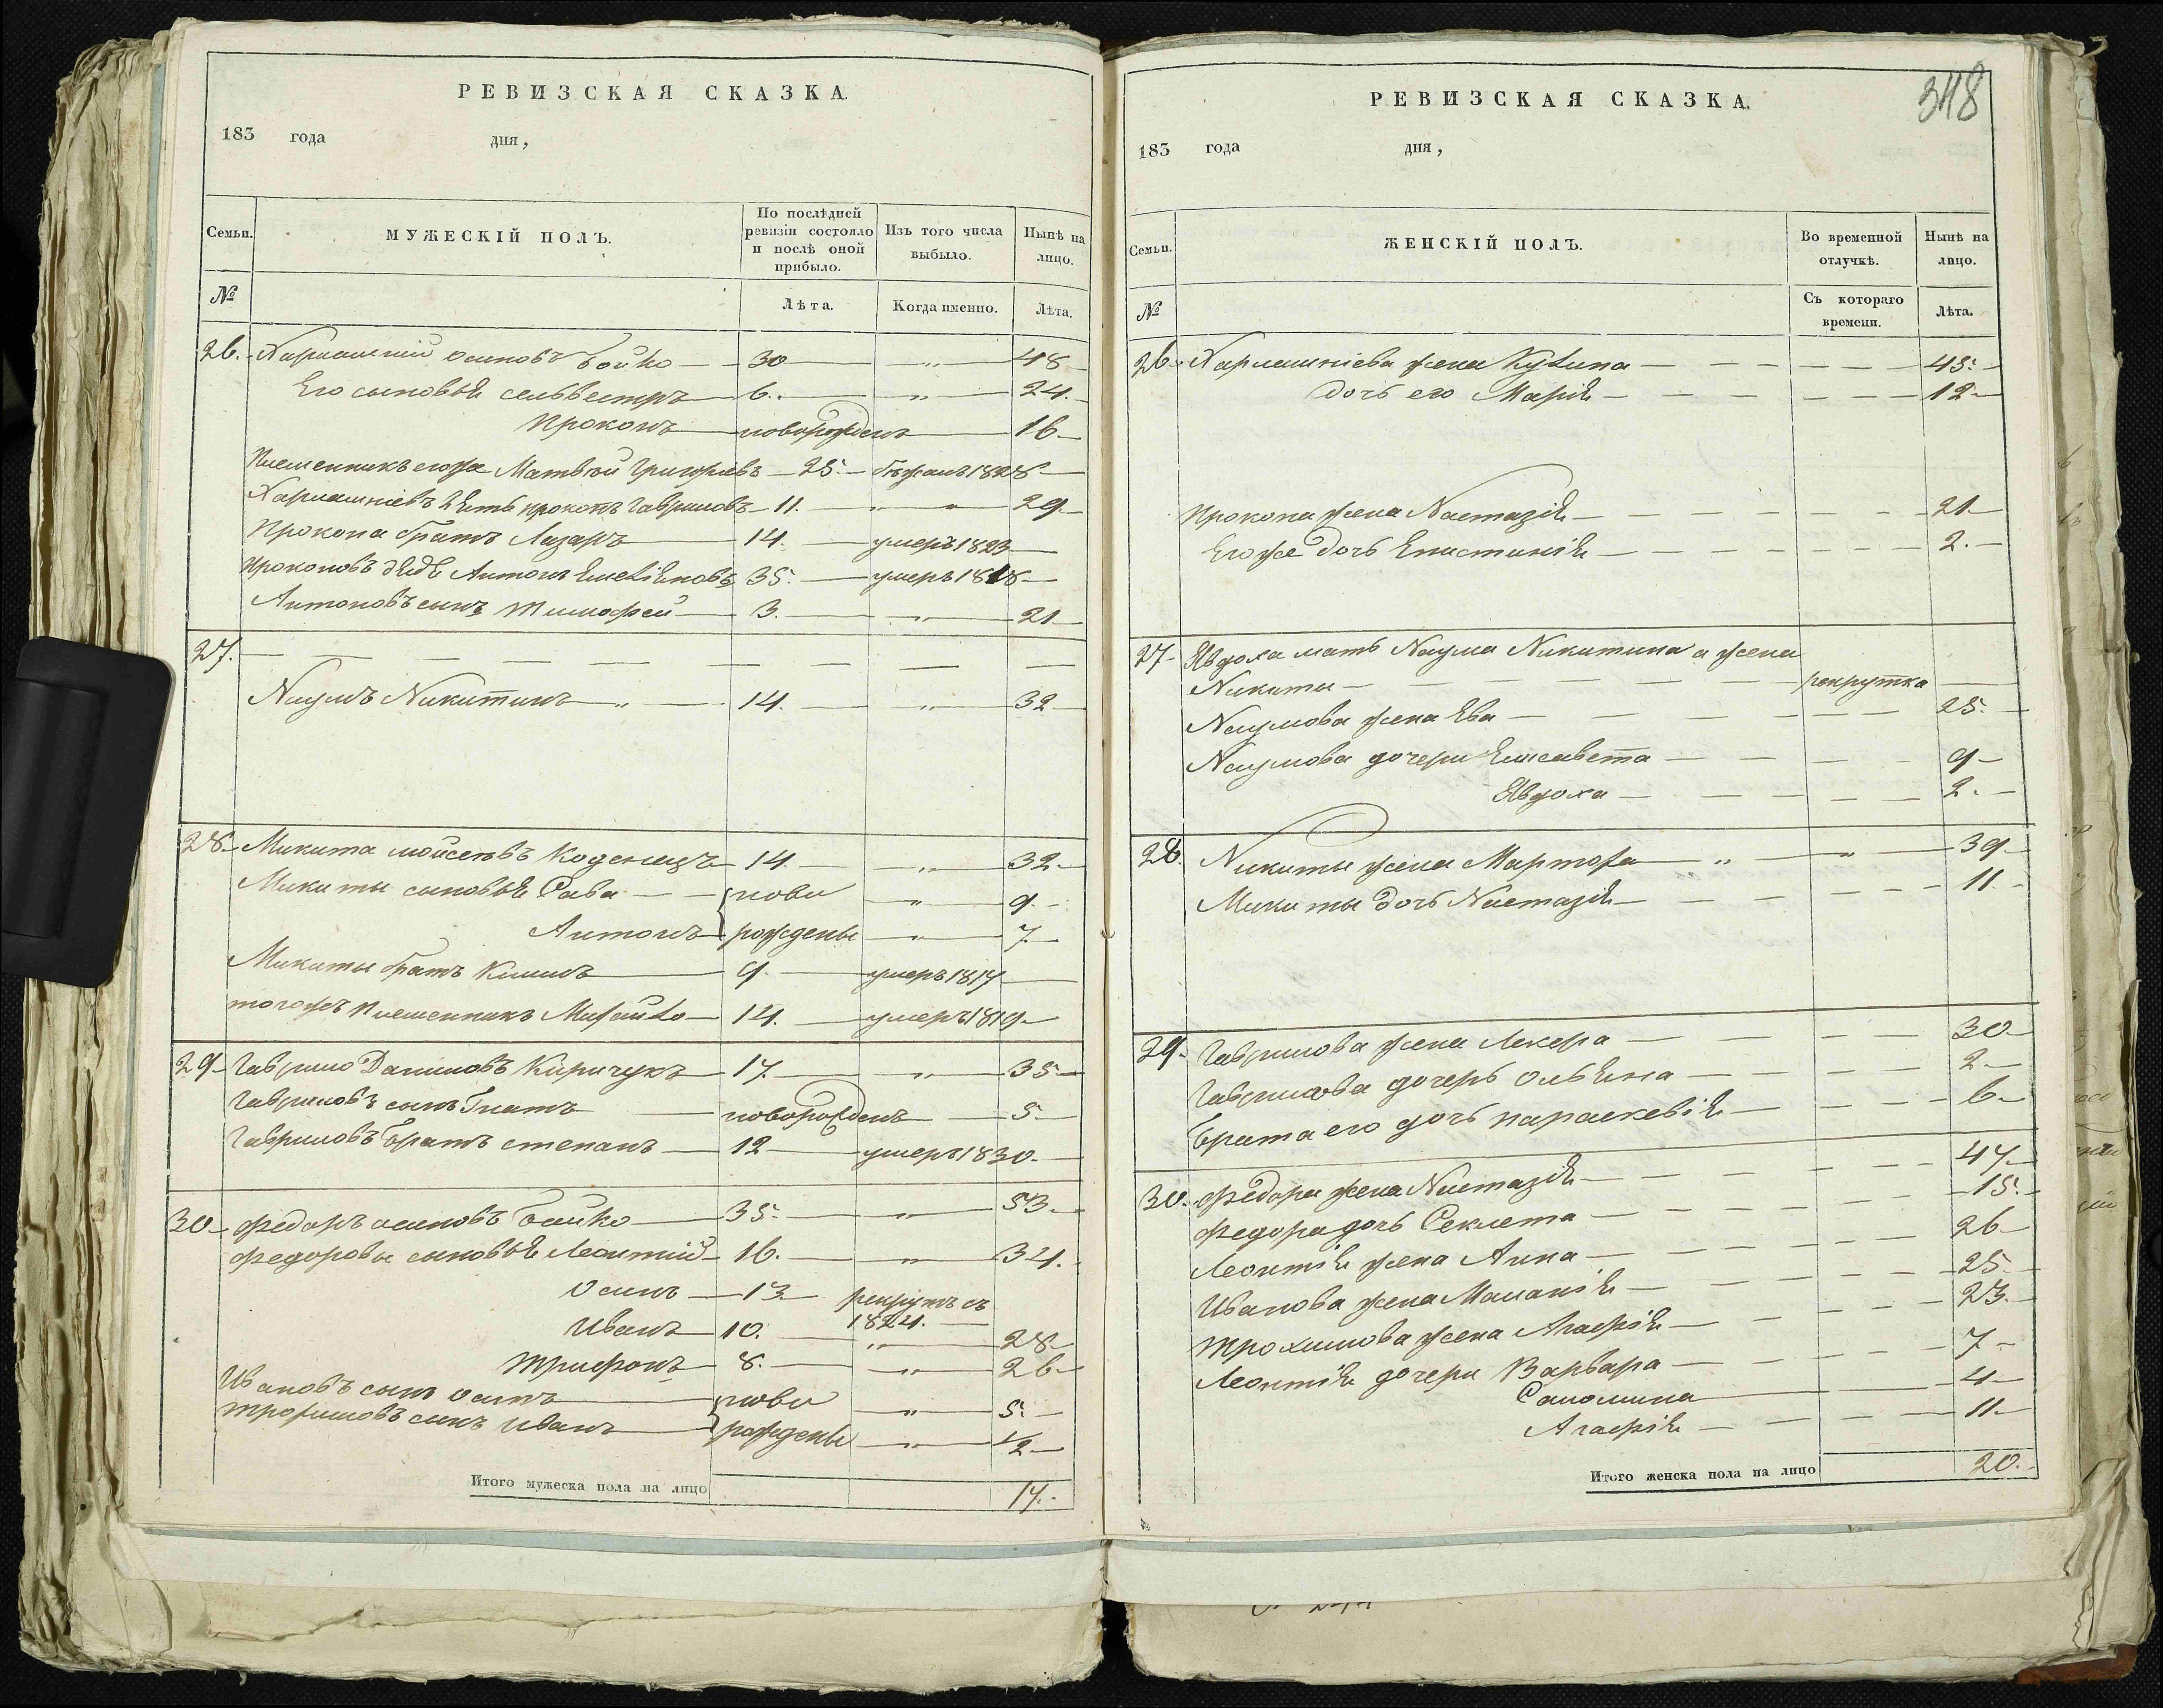 РЕВИЗСКАЯ СКАЗКА.
183 года дня,
Семьи. МУЖЕСКІЙ ПОЛЪ. По послѣдней ревизіи состояло и послѣ оной прибыло. Изъ того числа выбыло. Нынѣ на лицо.
№ Лѣта. Когда именно. Лѣта.
26. Харлампій Осиповъ Бойко 30 " 48
Его сыновья Сельвестръ 6. " 24.
Прокопъ новорожденъ 16
Племенникъ его же Матвей Григорьевъ 25 бежалъ 1828
Харлампіевъ зять Прокопъ Гавриловъ 11. " " 29
Прокопа братъ Лазаръ 14. умеръ 1823
Прокоповъ дядя Антонъ 35. умеръ 1818
Антоновъ сынъ Тимофей 3. " 21
27.
Наумъ Никитинъ " 14. " 32
28. Микита Мойсеевъ Коденецъ 14 " 32
Микиты сыновья Сава ново " 9.
Антонъ рождены " 7
Микиты братъ Климъ 9. умеръ 1817
тогожъ племенникъ Михайло 14. умеръ 1819
29 Гаврило Даниловъ Киричукъ 17. " 35
Гавриловъ сынъ Гнатъ новорожденъ 5
Гавриловъ братъ Степанъ 12 умеръ 1830.
30 Федоръ Осиповъ Бойко 35. " 53
Федоровы сыновья Леонтій 16. " 34.
Осипъ 13 рекрутъ съ 1824.
Иванъ 10. " 28
Трифонъ 8. " 26
Ивановъ сынъ Осипъ ново " 5.
Трофимовъ сынъ Иванъ рождены " 1/2
Итого мужеска пола на лицо 17.
348
РЕВИЗСКАЯ СКАЗКА.
183 года дня,
Семьи. ЖЕНСКІЙ ПОЛЪ. Во временной отлучкѣ. Нынѣ на лицо.
№ Съ котораго времени. Лѣта.
26 Харлампіева жена 43.
дочь его Марія 12
Прокопа жена Настазія 21.
Его же дочь Епистимія 2.
27 Явдоха мать Наума Никитина а жена
Никиты рекрутка
Наумова жена Ева 25.
Наумова дочери Елисавета 9
Явдоха 2.
28. Никиты жена Мартоха " " 39
Микиты дочь Настазія 11.
29. Гаврилова жена Лекера 30
Гаврилова дочерь Ольяна 2
Брата его дочь Параскевія 6
30. Федора жена Настазія 47
Федора дочь Секлета 15.
Леонтія жена Анна 26
Иванова жена Маланія 25
Трохимова жена Агафія 23.
Леонтія дочери Варвара 7
Соломина 4
Агафія 11
Итого женска пола на лицо 20.